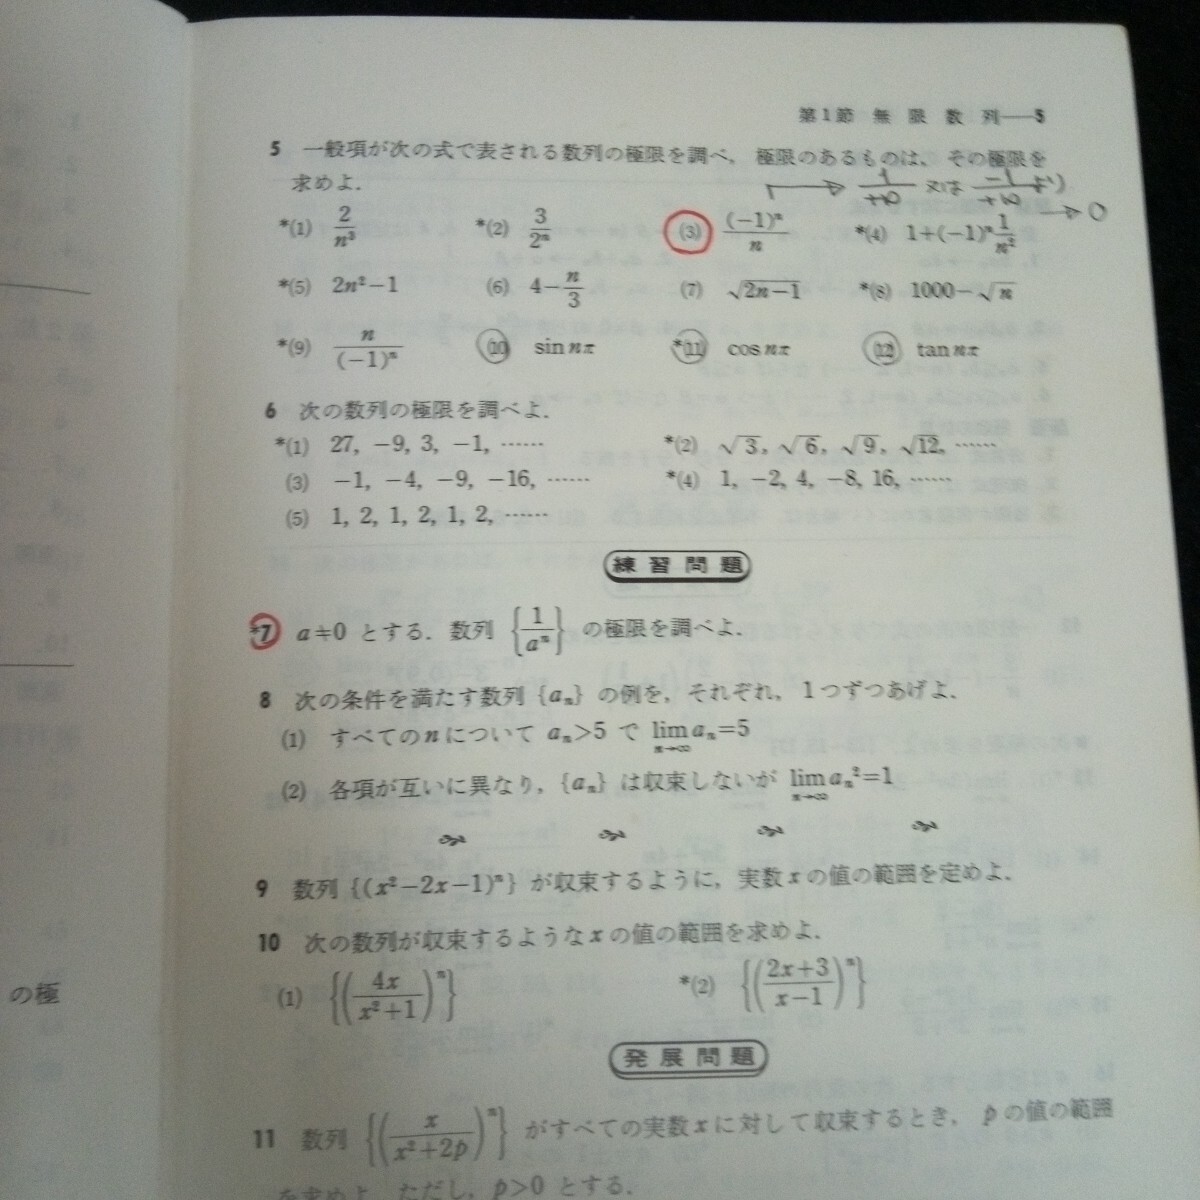 第1節 無 限 数 列――5
5 一般項が次の式で表される数列の極限を調べ, 極限のあるものは, その極限を
求めよ.
→ 1/+∞ 又は -1/+∞ より → 0
*(1) 2/n³ *(2) 3/2ⁿ (3) (-1)ⁿ/n *(4) 1+(-1)ⁿ 1/n²
*(5) 2n²-1 (6) 4-n/3 (7) √2n-1 *(8) 1000-√n
*(9) n/(-1)ⁿ (10) sin nπ *(11) cos nπ (12) tan nπ
6 次の数列の極限を調べよ.
*(1) 27, -9, 3, -1, …… *(2) √3, √6, √9, √12, ……
(3) -1, -4, -9, -16, …… *(4) 1, -2, 4, -8, 16, ……
(5) 1, 2, 1, 2, 1, 2, ……
練習問題
*7 a≠0 とする. 数列 {1/aⁿ} の極限を調べよ.
8 次の条件を満たす数列 {aₙ} の例を, それぞれ, 1つずつあげよ.
(1) すべてのnについて aₙ>5 で lim n→∞ aₙ=5
(2) 各項が互いに異なり, {aₙ} は収束しないが lim n→∞ aₙ²=1
9 数列 {(x²-2x-1)ⁿ} が収束するように, 実数xの値の範囲を定めよ.
10 次の数列が収束するようなxの値の範囲を求めよ.
(1) {(4x/x²+1)ⁿ} *(2) {(2x+3/x-1)ⁿ}
の極
発展問題
11 数列 {(x/x²+2p)ⁿ} がすべての実数xに対して収束するとき, pの値の範囲
を求めよ. ただし, p>0 とする.